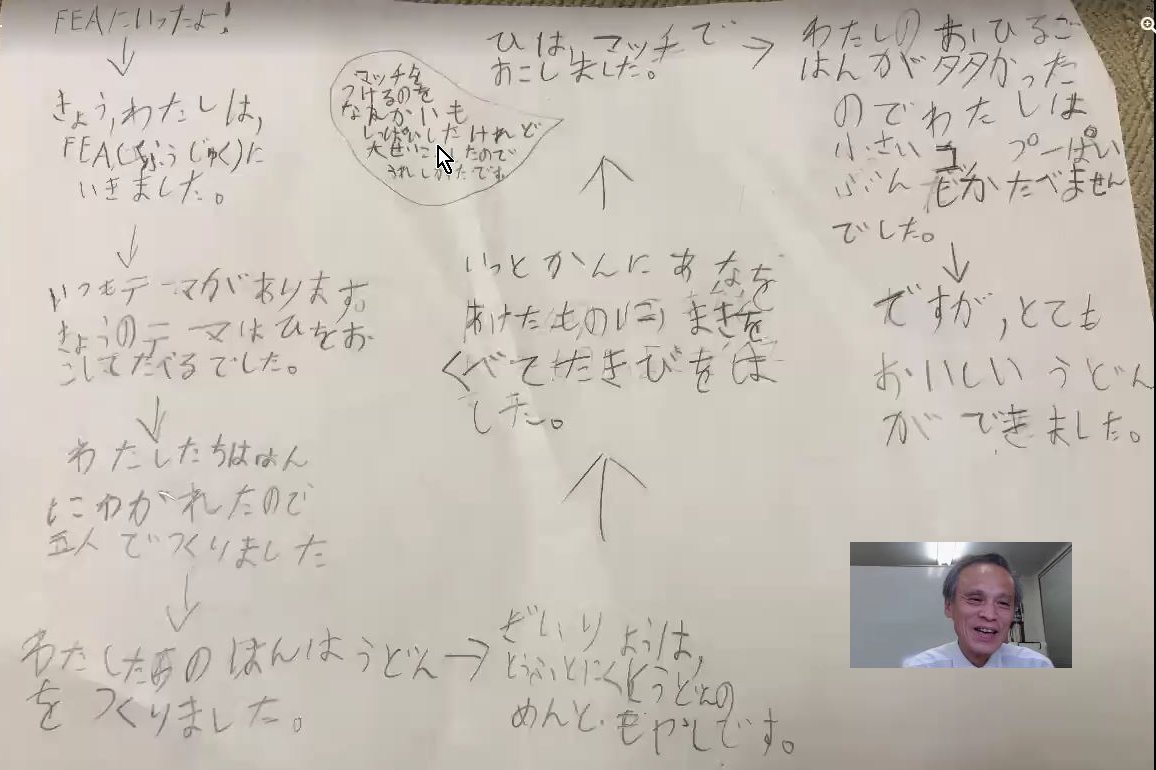 FEAにいったよ!
きょう,わたしは,
FEA(ふうじゅく)に
いきました。
いつもテーマがあります。
きょうのテーマはひをお
こしてたべるでした。
わたしたちははん
にわかれたので
五人でつくりました
わたしたちのはんはうどん
をつくりました。
ざいりょうは,
とうふとにくとうどんの
めんと.もやしです。
いっとかんにあなを
あけたものに まきを
くべてたきびをは
した。
ひは,マッチで
おこしました。
マッチを
つけるのを
なんかいも
しっぱいしたけれど
大せいこ したので
うれしかたです。
わたしのおひるご
はんがタタかった
のでわたしは
小さいコップ一ぱい
ぶんしかたべません
でした。
ですが,とても
おいしいうどん
ができました。